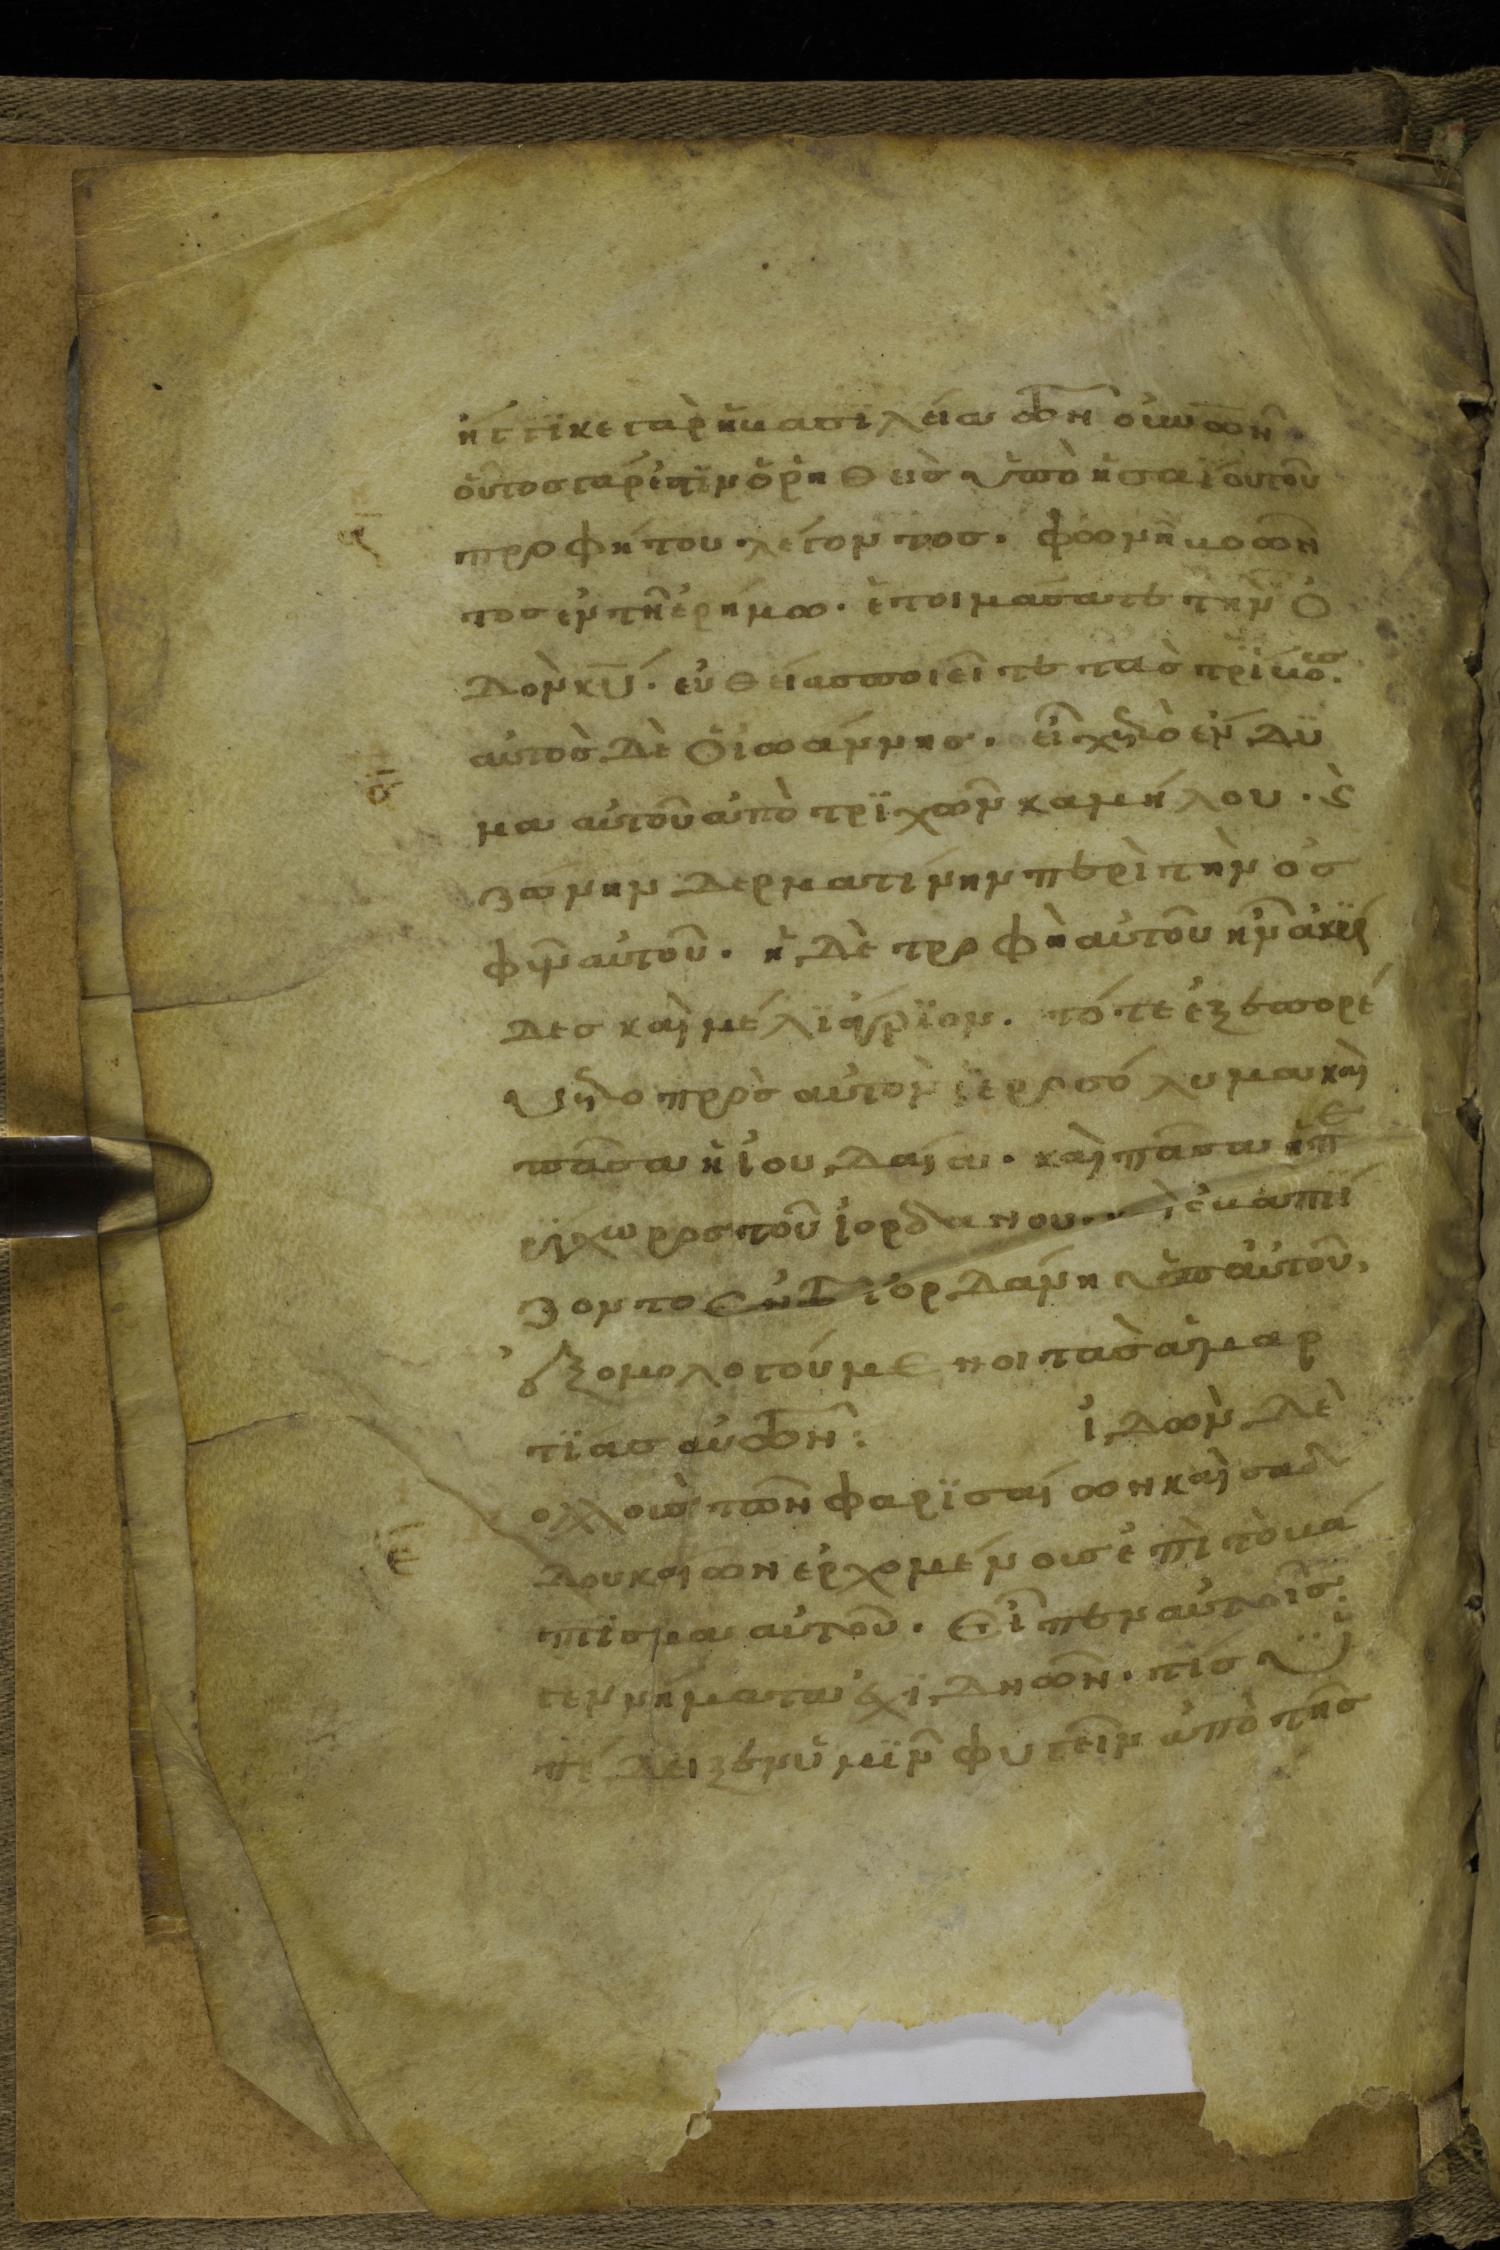 ἤγγϊκε γὰρ ἡ βασιλεία τῶν ουνῶν.
οὗτος γάρ ἐστϊν ὁ ῥηθεὶς ὑπὸ ἠσαΐου τοῦ
προφήτου λέγοντος. φωνὴ βοῶν
τος ἐν τῆ ἐρήμω. ἑτοιμάσατε τὴν ὁ
δὸν κυ. εὐθείας ποιεῖτε τὰς τρίβους
αὐτὸς δὲ ὁ ἰωάννης. εἶχε τὸ ἔνδϋ
μα αὐτοῦ ἀπὸ τρϊχῶν καμήλου. καὶ
ζώνην δερματίνην περὶ τὴν ὀσ
φὺν αὐτοῦ. ἡ δὲ τροφὴ αὐτοῦ ἦν ἀκρί
δες καὶ μέλϊ ἄγρϊον. τότε ἐξεπορεύ
ετο πρὸς αὐτὸν ἱεροσόλυμα καὶ
πᾶσα ἡ ἰουδαία. καὶ πᾶσα ἡ πε
ρίχωρος τοῦ ἰορδάνου. καὶ ἐβαπτί
ζοντο ἐν τῶ ἰορδάνη ὑπ αὐτοῦ,
ἐξομολογούμενοι τὰς ἁμαρ
τΐας αὐτῶν: ἰδὼν δὲ
πολλοὺς τῶν φαρϊσαίων καὶ σαδ
δουκαίων ἐρχομένους ἐπὶ τὸ βά
πτϊσμα αὐτοῦ. εἶπεν αὐτοῖς.
γεννήματα ἐχϊδνῶν. τίς ὑ
πέδειξεν ὑμϊν φυγεῖν ἀπὸ τῆς